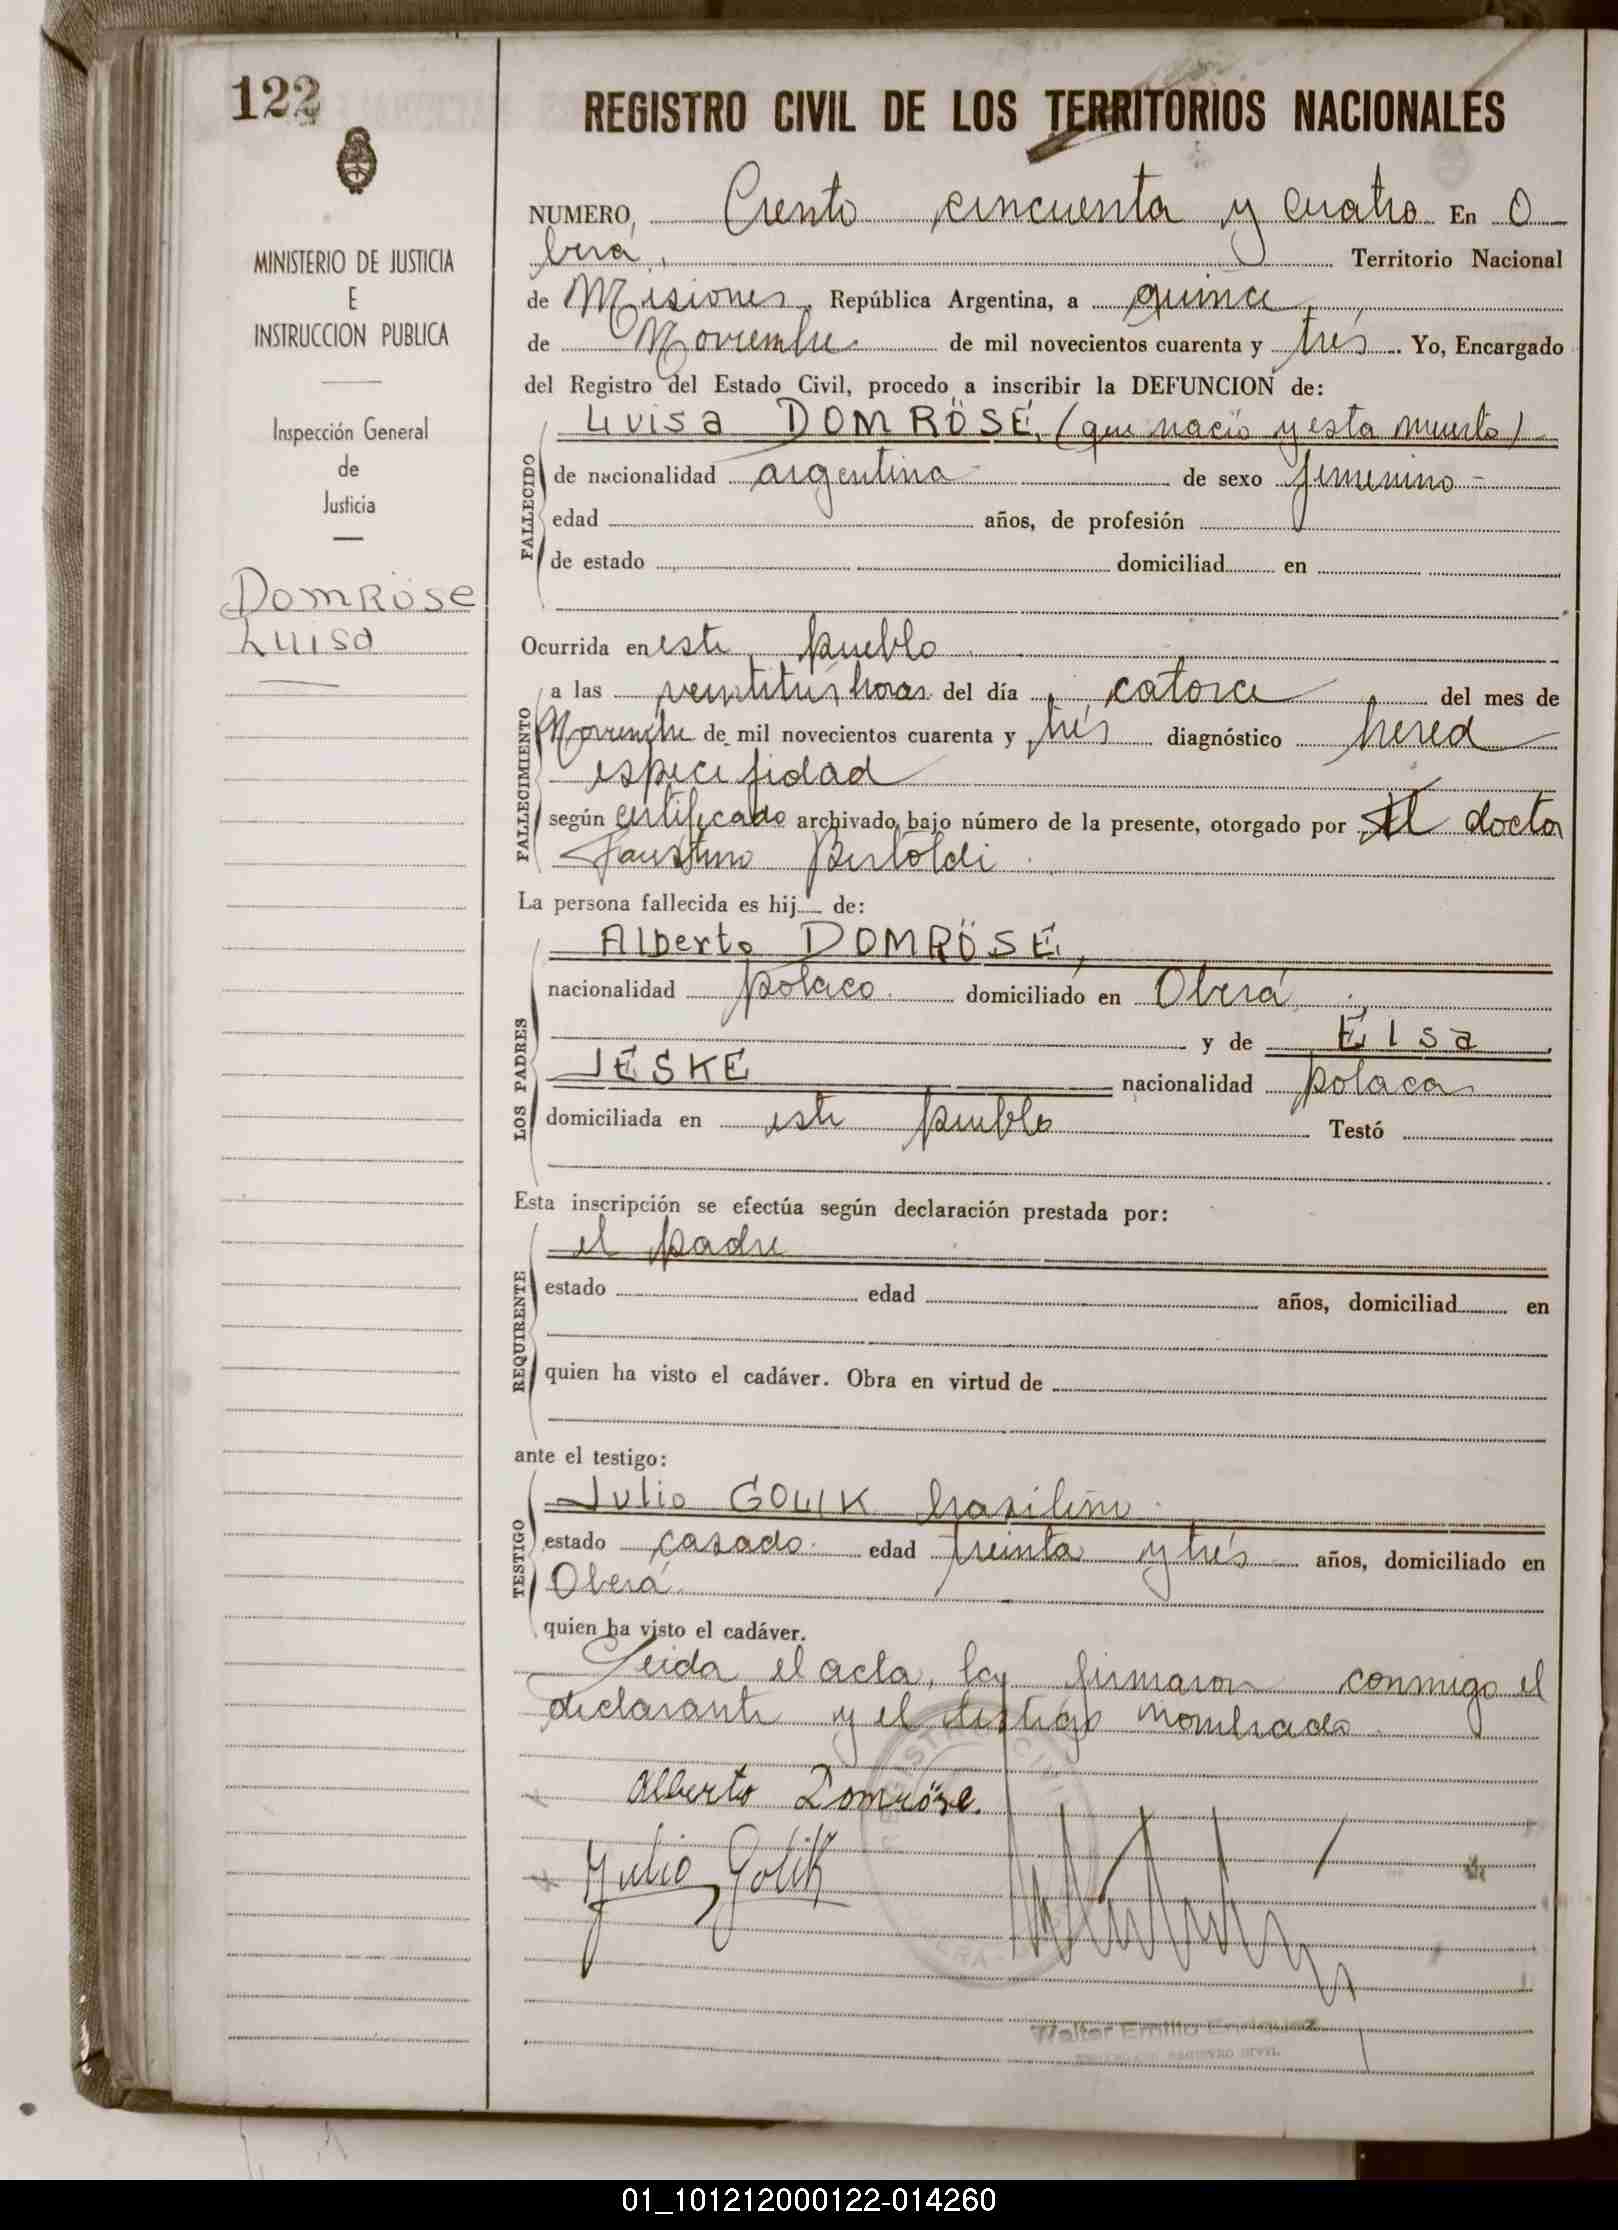 122
REGISTRO CIVIL DE LOS TERRITORIOS NACIONALES
MINISTERIO DE JUSTICIA
E
INSTRUCCION PUBLICA
Inspección General
de
Justicia
DomRöse
Luisa
NUMERO, Ciento cincuenta y cuatro En O
berá, Territorio Nacional
de Misiones, República Argentina, a quince
de Noviembre de mil novecientos cuarenta y trés. Yo, Encargado
del Registro del Estado Civil, procedo a inscribir la DEFUNCION de:
FALLECIDO
Luisa DOMRÖSE, (que nació y esta muerta)
de nacionalidad argentina de sexo femenino
edad años, de profesión
de estado domiciliad en
Ocurrida en este pueblo
FALLECIMIENTO
a las veintitrés horas del día catorce del mes de
Noviembre de mil novecientos cuarenta y trés diagnóstico hered
especifidad
según certificado archivado bajo número de la presente, otorgado por el doctor
Faustino Bertoldi
La persona fallecida es hij de:
LOS PADRES
Alberto DOMRÖSE,
nacionalidad polaco domiciliado en Oberá
y de Elsa
JESKE nacionalidad polaca
domiciliada en este pueblo Testó
Esta inscripción se efectúa según declaración prestada por:
REQUIRENTE
el padre
estado edad años, domiciliad en
quien ha visto el cadáver. Obra en virtud de
ante el testigo:
TESTIGO
Julio GOLIK brasileño
estado casado edad treinta y trés años, domiciliado en
Oberá
quien ha visto el cadáver.
Leida el acta, la firmaron conmigo el
declarante y el testigo nombrado.
Alberto Domröse.
Julio Golik
REGISTRO CIVIL
OBERA
Walter Emilio Enriquez
ENCARGADO REGISTRO CIVIL
01_101212000122-014260